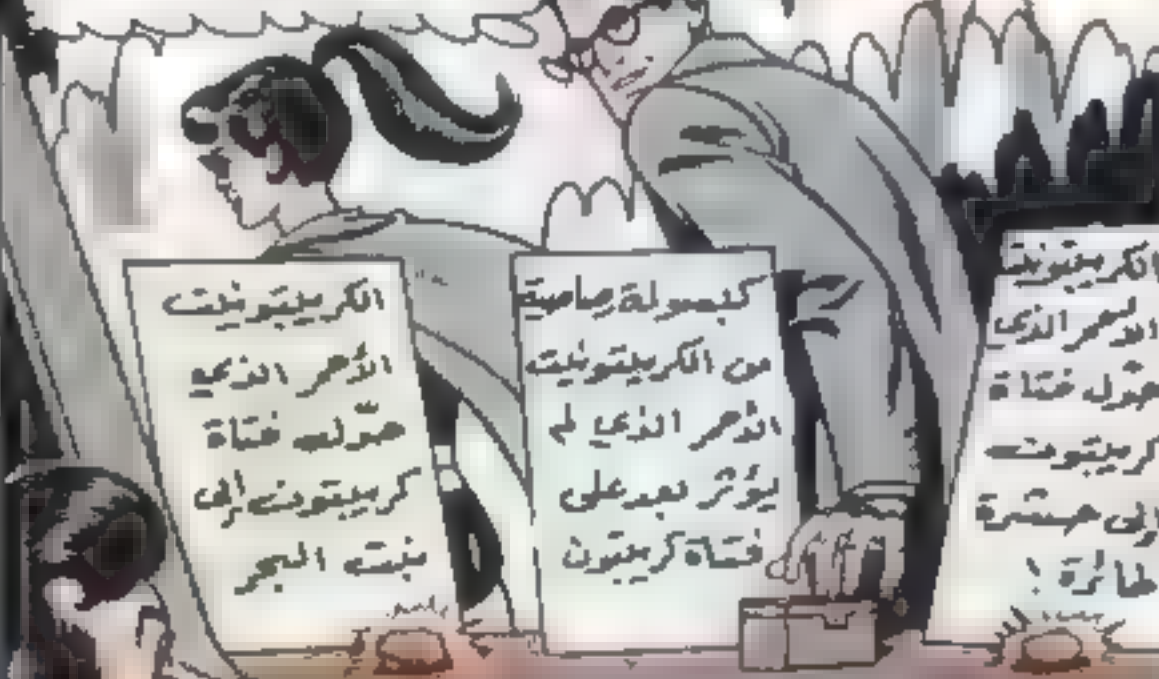 الكريبتونيت
الأحمر الذي
حوّل فتاة
كريبتون
إلى حشرة
طائرة !
كبسولة رصاصية
من الكريبتونيت
الأحمر الذي لم
يؤثر بعد على
فتاة كريبتون
الكريبتونيت
الأحمر الذي
حوّلت فتاة
كريبتون إلى
بنت البحر